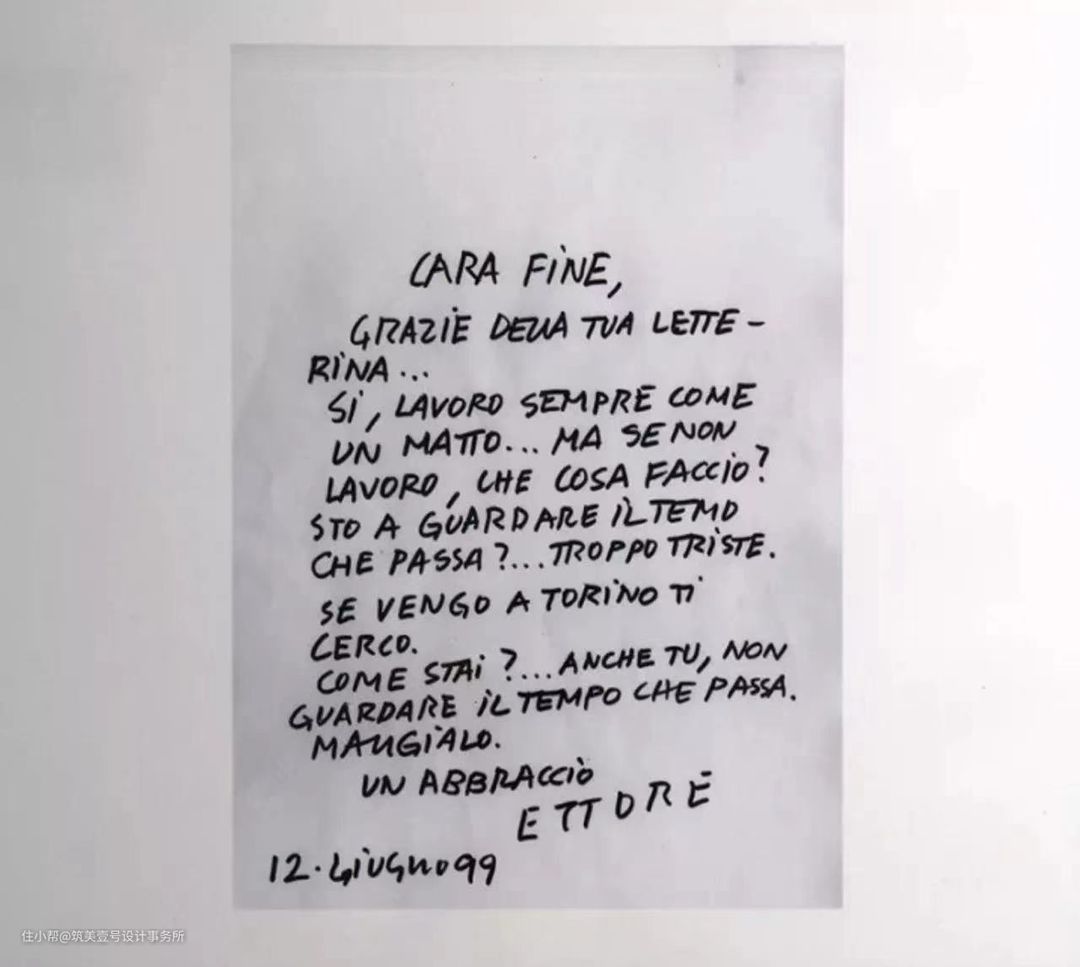 CARA FINE,
GRAZIE DELLA TUA LETTE-
RINA...
SI, LAVORO SEMPRE COME
UN MATTO... MA SE NON
LAVORO, CHE COSA FACCIO?
STO A GUARDARE IL TEMO
CHE PASSA?... TROPPO TRISTE.
SE VENGO A TORINO TI
CERCO.
COME STAI?... ANCHE TU, NON
GUARDARE IL TEMPO CHE PASSA.
MANGIALO.
UN ABBRACCIO
ETTORE
12. GIUGNO 99
住小帮@筑美壹号设计事务所